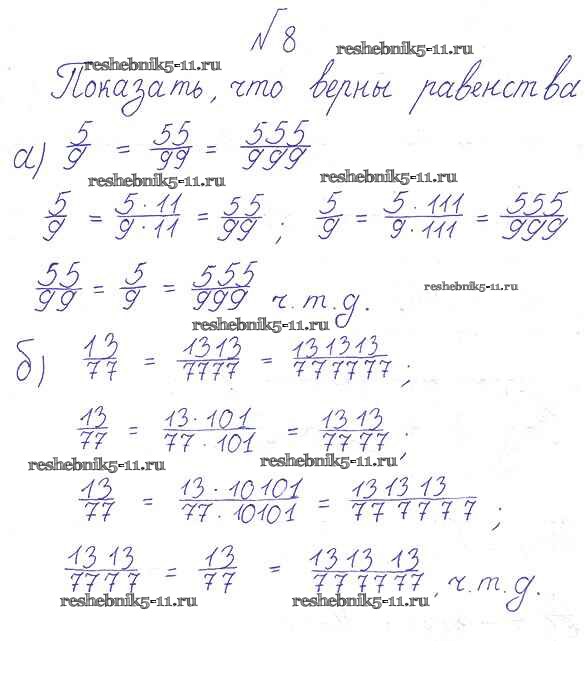 № 8
reshebnik5-11.ru
reshebnik5-11.ru
Показать, что верны равенства
а) 5/9 = 55/99 = 555/999
reshebnik5-11.ru reshebnik5-11.ru
5/9 = 5·11/9·11 = 55/99; 5/9 = 5·111/9·111 = 555/999
55/99 = 5/9 = 555/999 ч.т.д.
reshebnik5-11.ru
reshebnik5-11.ru
б) 13/77 = 1313/7777 = 131313/777777;
13/77 = 13·101/77·101 = 1313/7777;
reshebnik5-11.ru reshebnik5-11.ru
13/77 = 13·10101/77·10101 = 131313/777777;
1313/7777 = 13/77 = 131313/777777, ч.т.д.
reshebnik5-11.ru reshebnik5-11.ru